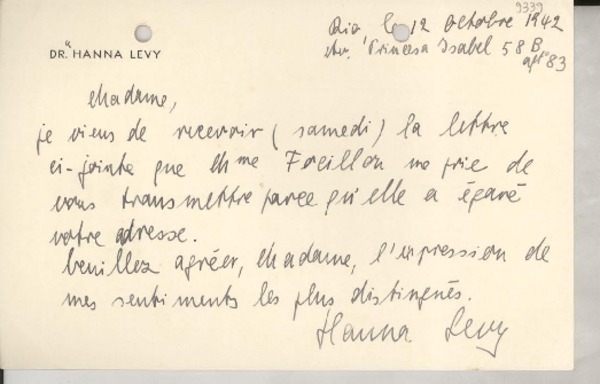 9339
Rio le 12 octobre 1942
Av. Princesa Isabel 58 B
apt° 83
DR. HANNA LEVY
Madame,
je viens de recevoir (samedi) la lettre
ci-jointe que Mme Focillon me prie de
vous transmettre parce qu'elle a égaré
votre adresse.
Veuillez agréer, Madame, l'expression de
mes sentiments les plus distingués.
Hanna Levy